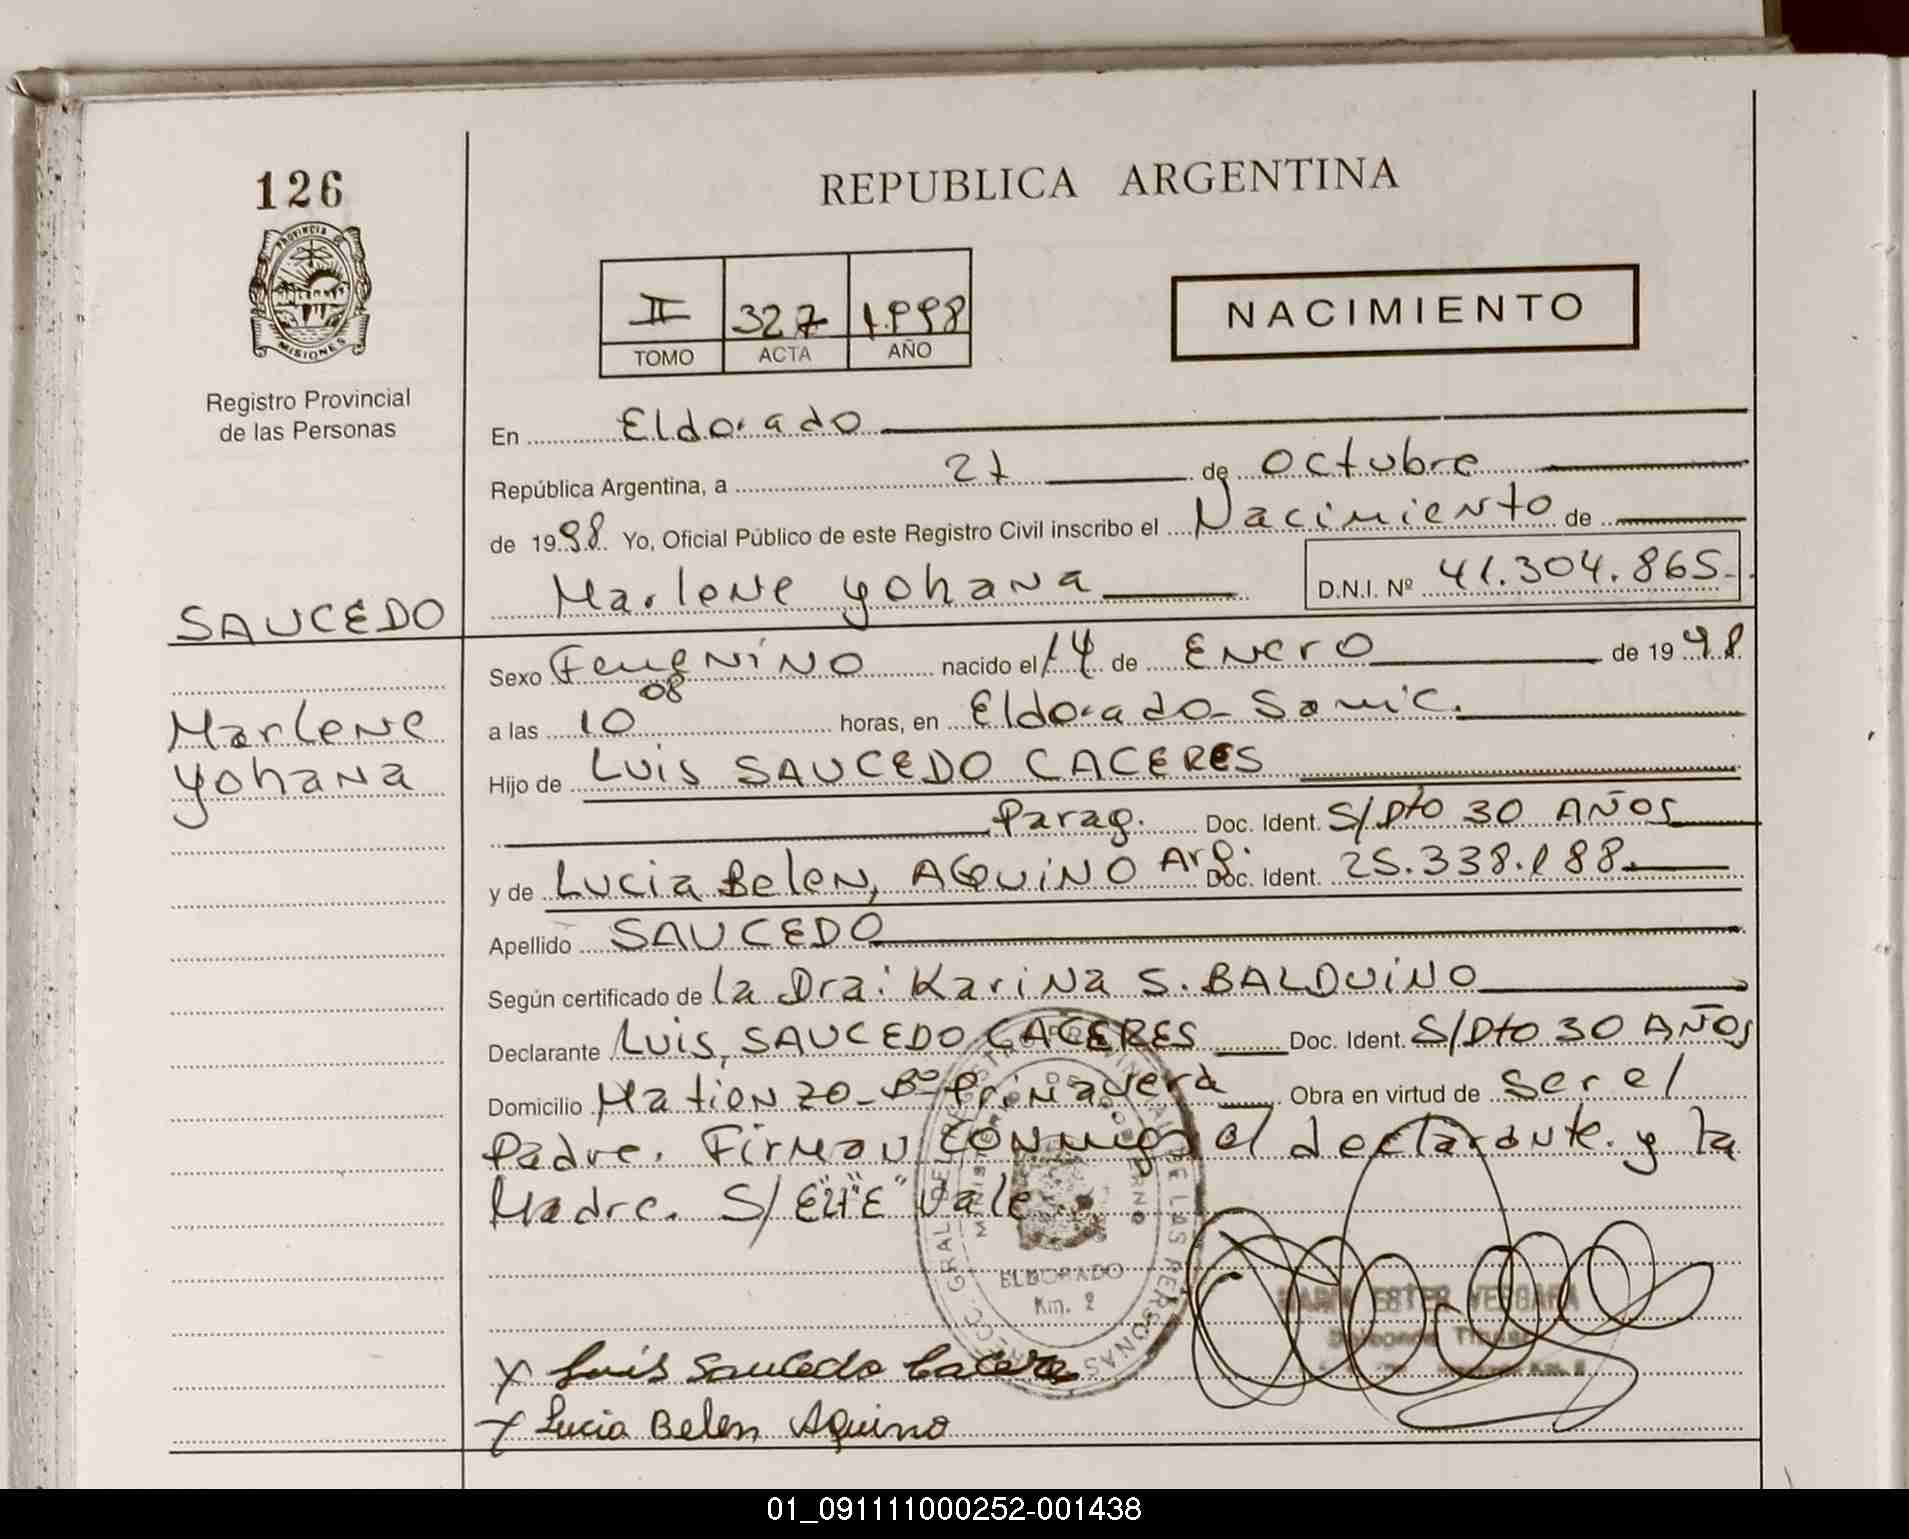 126
PROVINCIA DE
MISIONES
Registro Provincial
de las Personas
SAUCEDO
Marlene
Yohana
REPUBLICA ARGENTINA
II 327 1.998
TOMO ACTA AÑO
NACIMIENTO
En Eldorado
República Argentina, a 27 de Octubre
de 1998 Yo, Oficial Público de este Registro Civil inscribo el Nacimiento de
Marlene Yohana D.N.I. Nº 41.304.865-
Sexo Femenino nacido el 14 de Enero de 1998
a las 10 08 horas, en Eldorado- Samic.
Hijo de Luis SAUCEDO CACERES
Parag. Doc. Ident. S/Dto 30 AÑOS
y de Lucia Belen, AQUINO Arg. Doc. Ident. 25.338.188.
Apellido SAUCEDO
Según certificado de la Dra: Karina S. BALDUINO
Declarante Luis, SAUCEDO CACERES Doc. Ident. S/Dto 30 AÑOS
Domicilio Matienzo- Bº Primavera Obra en virtud de ser el
Padre. Firman conmigo el declarante y la
Madre. S/E "27" E" Vale.
ELDORADO
Km. 2
MARIA ESTER VERGARA
x Luis Saucedo Cacere
x Lucia Belen Aquino
01_091111000252-001438